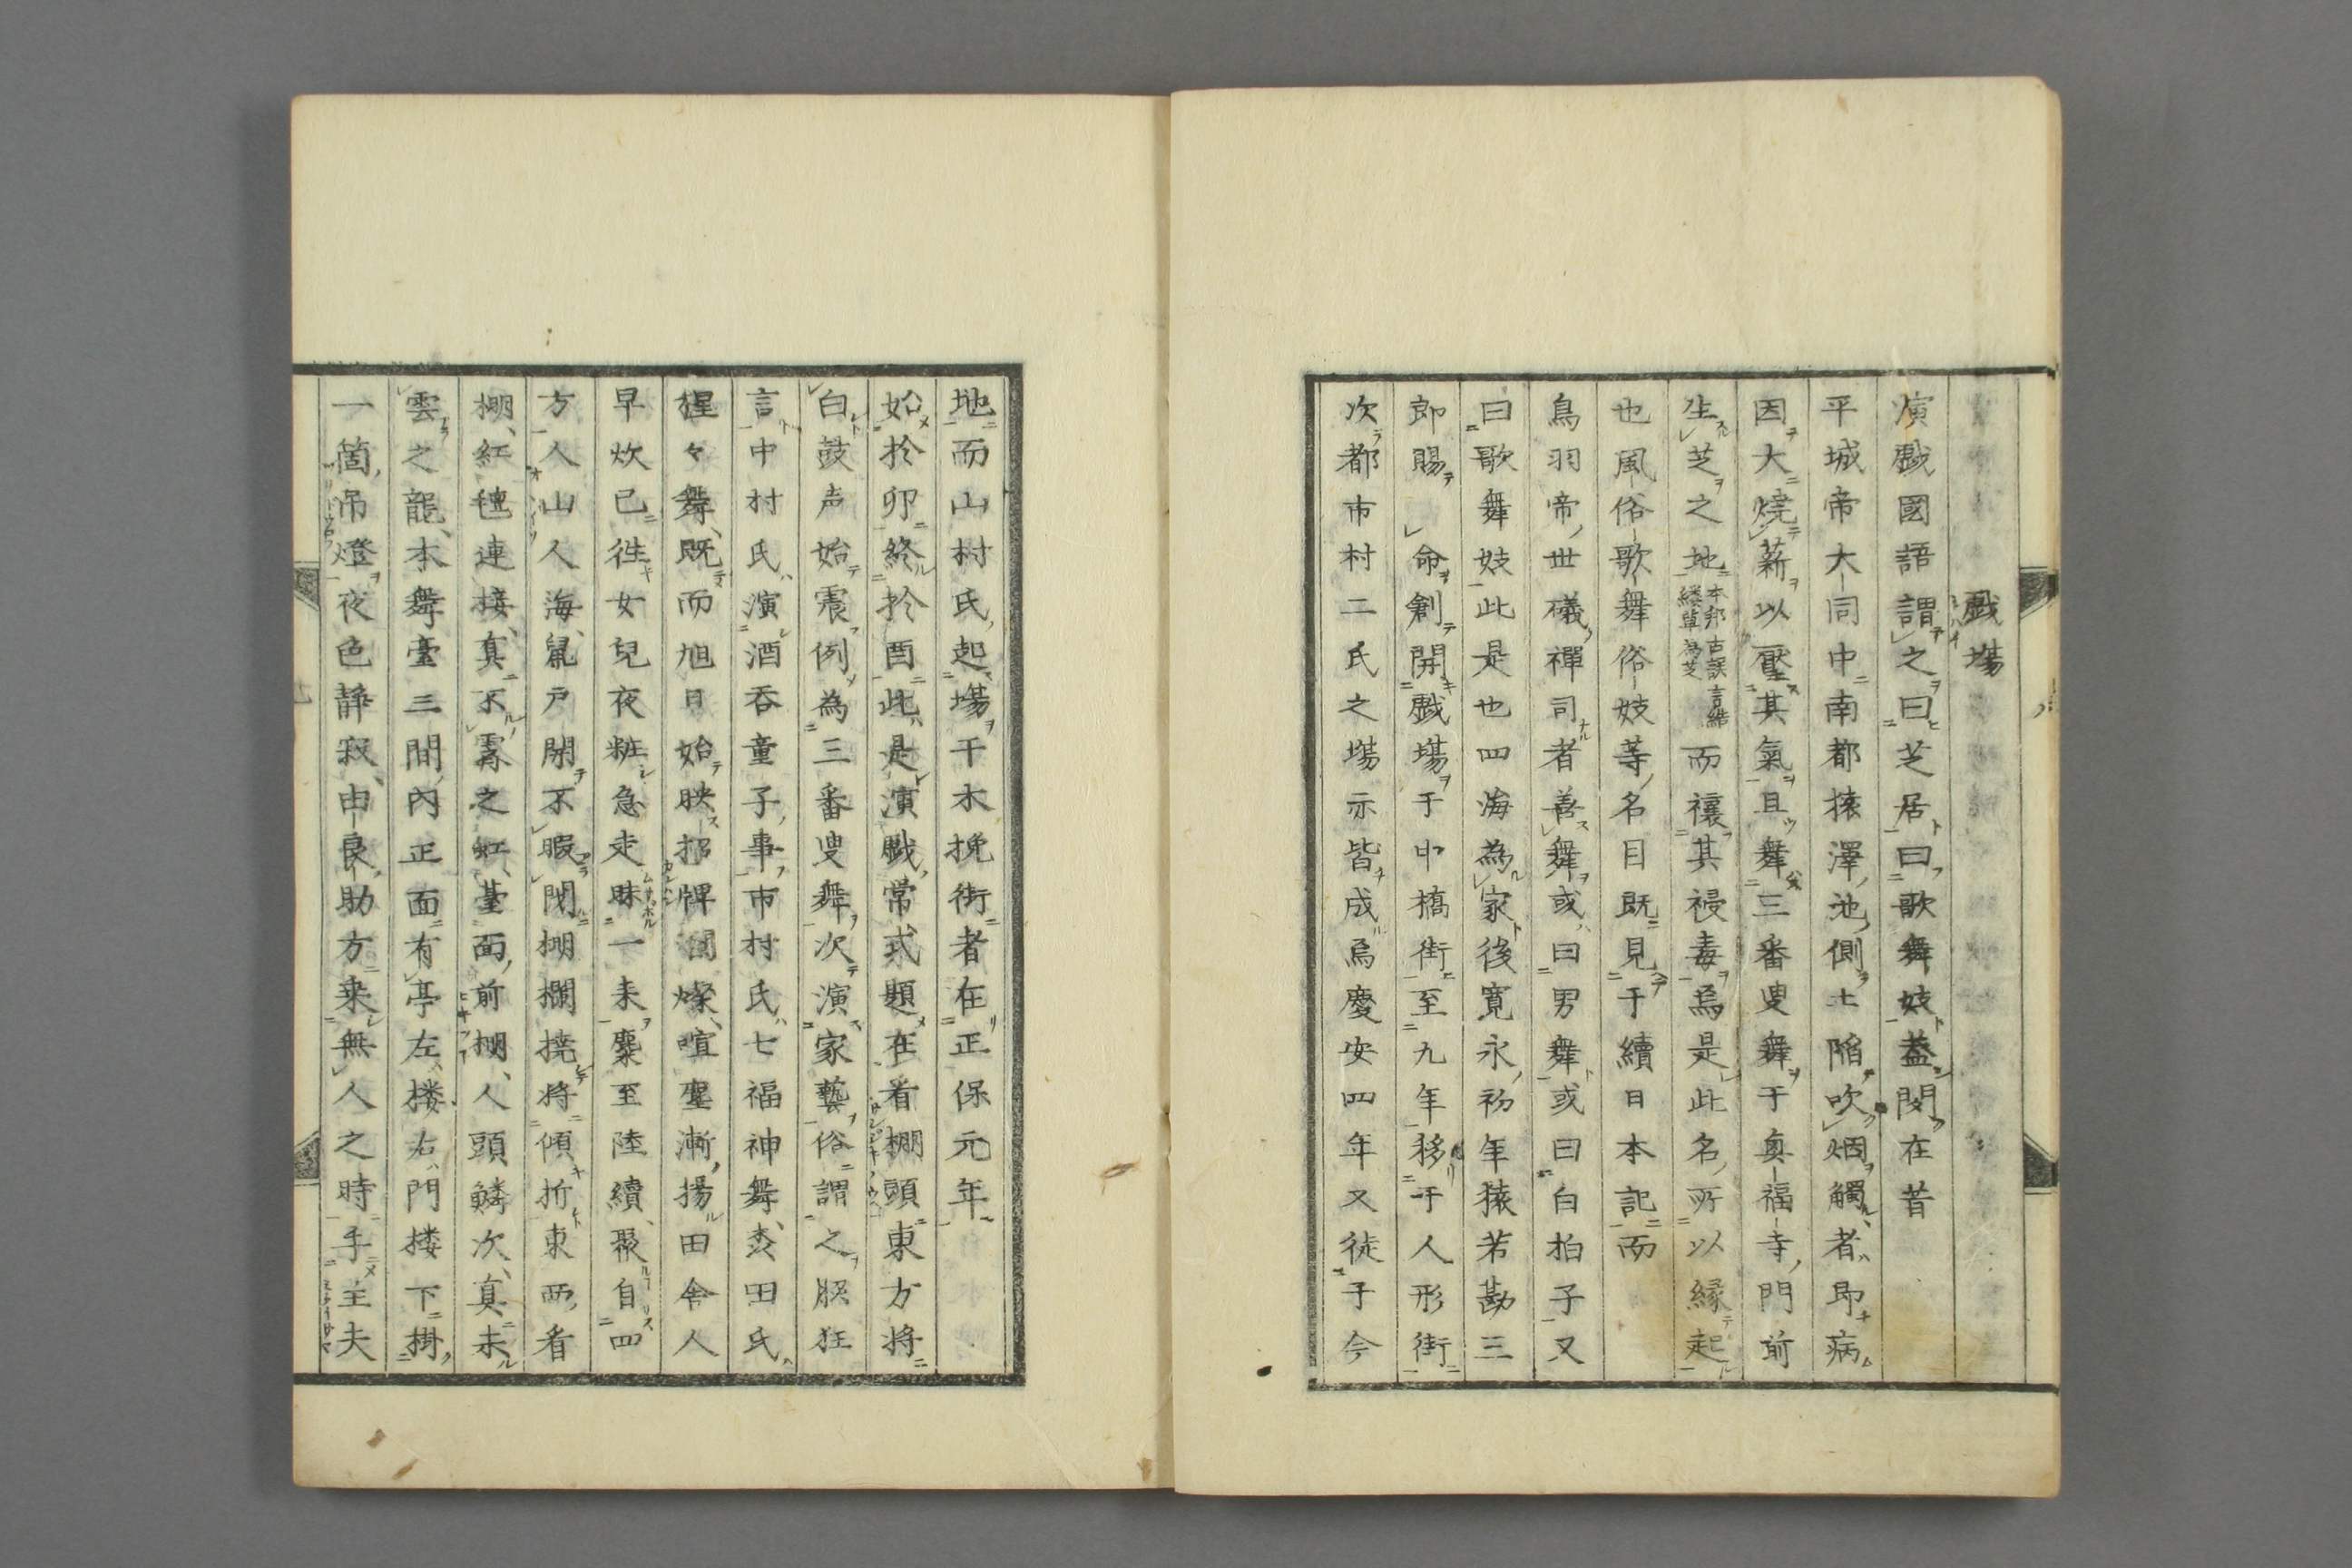 戯場
演戯國語謂之曰芝居曰歌舞妓葢閔在昔
平城帝大同中南都猿澤池側土陥吹烟觸者即病
因大焼薪以壓其氣且舞三番叟舞于興福寺門前
生芝之地本邦古訳言結縷草為芝而禳其祲毒焉是此名所以縁起
也風俗歌舞俗妓等名目既見于續日本記而
鳥羽帝世礒禪司者善舞或曰男舞或曰白拍子又
曰歌舞妓此是也四海為家後寛永初年猿若勘三
郎賜命創開戯場于中橋街至九年移于人形街
次都市村二氏之場亦皆成焉慶安四年又徙于今
地而山村氏起場于木挽街者在正保元年
始於卯終於酉此是演戯常式題在看棚頭東方将
白鼓声始震例為三番叟舞次演家藝俗謂之脇狂
言中村氏演酒呑童子事市村氏七福神舞森田氏
猩々舞既而旭日始映招牌爛燦喧塵漸揚田舎人
早炊已徃女兒夜粧急走昧一来麋至陸續聚自四
方人山人海鼠戸閉不暇閉棚欄撓将傾折東西看
棚紅氊連接真不霽之虹臺面前棚人頭鱗次真未
雲之龍本舞臺三間内正面有亭左楼右門楼下掛
一箇吊燈夜色静寂由良助方乗無人之時手主夫